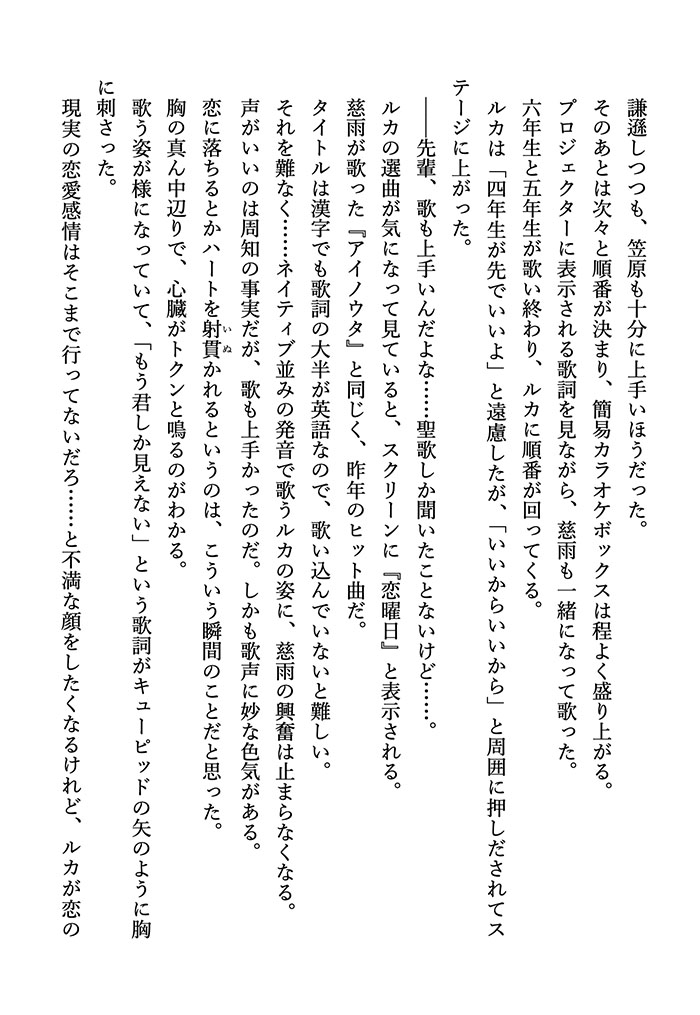 謙遜しつつも、笠原も十分に上手いほうだった。
そのあとは次々と順番が決まり、簡易カラオケボックスは程よく盛り上がる。
プロジェクターに表示される歌詞を見ながら、慈雨も一緒になって歌った。
六年生と五年生が歌い終わり、ルカに順番が回ってくる。
ルカは「四年生が先でいいよ」と遠慮したが、「いいからいいから」と周囲に押しだされてス
テージに上がった。
――先輩、歌も上手いんだよな……聖歌しか聞いたことないけど……。
ルカの選曲が気になって見ていると、スクリーンに『恋曜日』と表示される。
慈雨が歌った『アイノウタ』と同じく、昨年のヒット曲だ。
タイトルは漢字でも歌詞の大半が英語なので、歌い込んでいないと難しい。
それを難なく……ネイティブ並みの発音で歌うルカの姿に、慈雨の興奮は止まらなくなる。
声がいいのは周知の事実だが、歌も上手かったのだ。しかも歌声に妙な色気がある。
恋に落ちるとかハートを射貫かれるというのは、こういう瞬間のことだと思った。
いぬ
胸の真ん中辺りで、心臓がトクンと鳴るのがわかる。
歌う姿が様になっていて、「もう君しか見えない」という歌詞がキューピッドの矢のように胸
に刺さった。
現実の恋愛感情はそこまで行ってないだろ……と不満な顔をしたくなるけれど、ルカが恋の